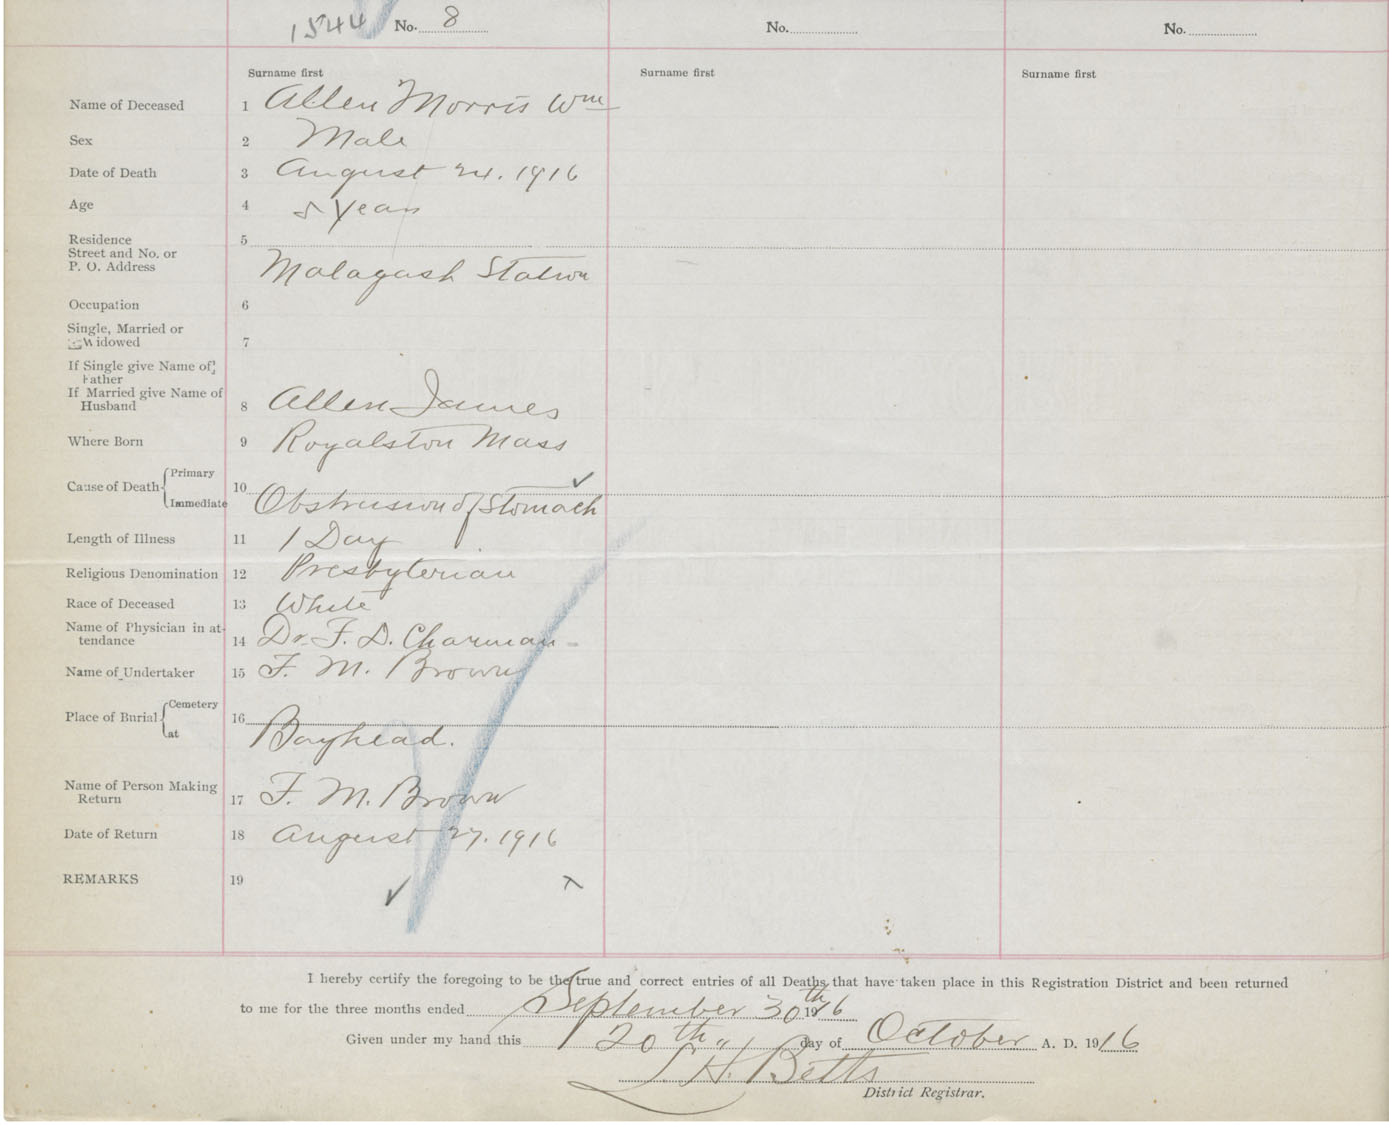 1544 No. 8 No. No.
Surname first Surname first Surname first
Name of Deceased 1 Allen Morris Wm
Sex 2 Male
Date of Death 3 August 24. 1916
Age 4 5 Years
Residence 5
Street and No. or
P. O. Address Malagash Station
Occupation 6
Single, Married or
Widowed 7
If Single give Name of
Father
If Married give Name of
Husband 8 Allen James
Where Born 9 Royalston Mass
Cause of Death Primary 10
Immediate Obstrusion of Stomach
Length of Illness 11 1 Day
Religious Denomination 12 Presbyterian
Race of Deceased 13 White
Name of Physician in at-
tendance 14 Dr. F. D. Charman
Name of Undertaker 15 F. M. Brown
Place of Burial Cemetery 16
at Bayhead.
Name of Person Making
Return 17 F. M. Brown
Date of Return 18 August 27. 1916
REMARKS 19
I hereby certify the foregoing to be the true and correct entries of all Deaths that have taken place in this Registration District and been returned
to me for the three months ended September 30th 1916
Given under my hand this 20th day of October A. D. 1916
L. H. Betts
District Registrar.